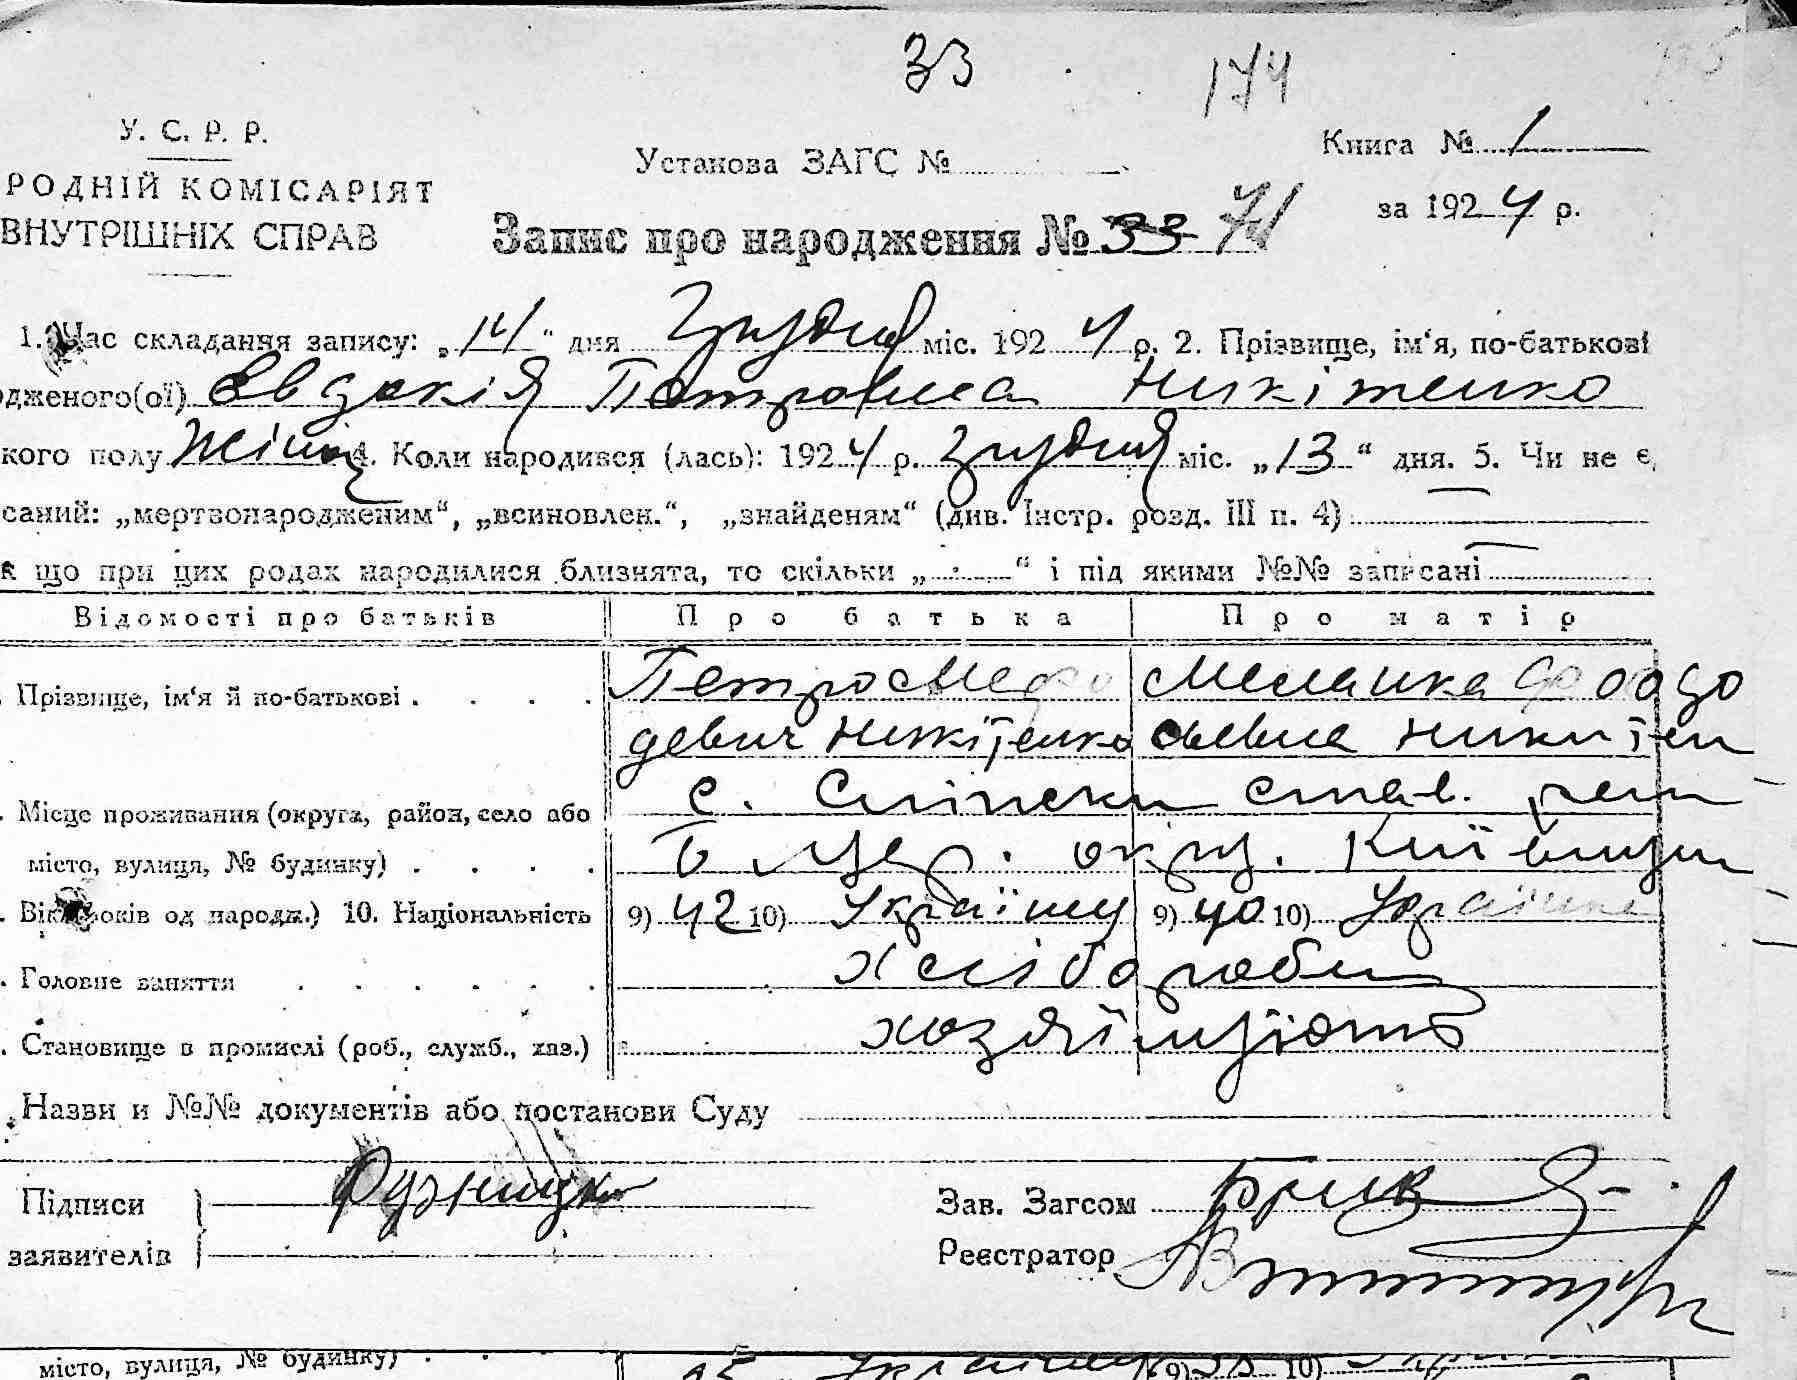 33
174
У. С. Р. Р.
РОДНІЙ КОМІСАРІЯТ
ВНУТРІШНІХ СПРАВ
Установа ЗАГС №
Книга № 1
за 1924 р.
Запис про народження № 33 71
1. Час складання запису: „14“ дня Грудня міс. 1924 р. 2. Прізвище, ім‘я, по-батькові
дженого(ої) Евдокія Петровна Никітенко
кого полу Жіноч 4. Коли народився (лась): 1924 р. Грудня міс. „13“ дня. 5. Чи не є
саний: „мертвонародженим“, „всиновлен.“, „знайденям“ (див. Інстр. розд. III п. 4)
к що при цих родах народилися близнята, то скільки „ “ і під якими №№ записані
Відомості про батьків Про батька Про матір
Прізвище, ім‘я й по-батькові . . . . Петро Мефо Меланка
девич Никітенко Никитен
Місце проживання (округа, район, село або с. став.
місто, вулиця, № будинку) . . . . Б Цер. окр. Київщини
Вік років од народж.) 10. Національність 9) 42 10) Українц 9) 40 10) Українка
. Головне заняття . . . . . . Хлібороби
. Становище в промислі (роб., служб., хаз.) хозяї
Назви и №№ документів або постанови Суду
Підписи
заявителів
Зав. Загсом
Реєстратор
місто, вулиця, № будинку) . 9) 10)